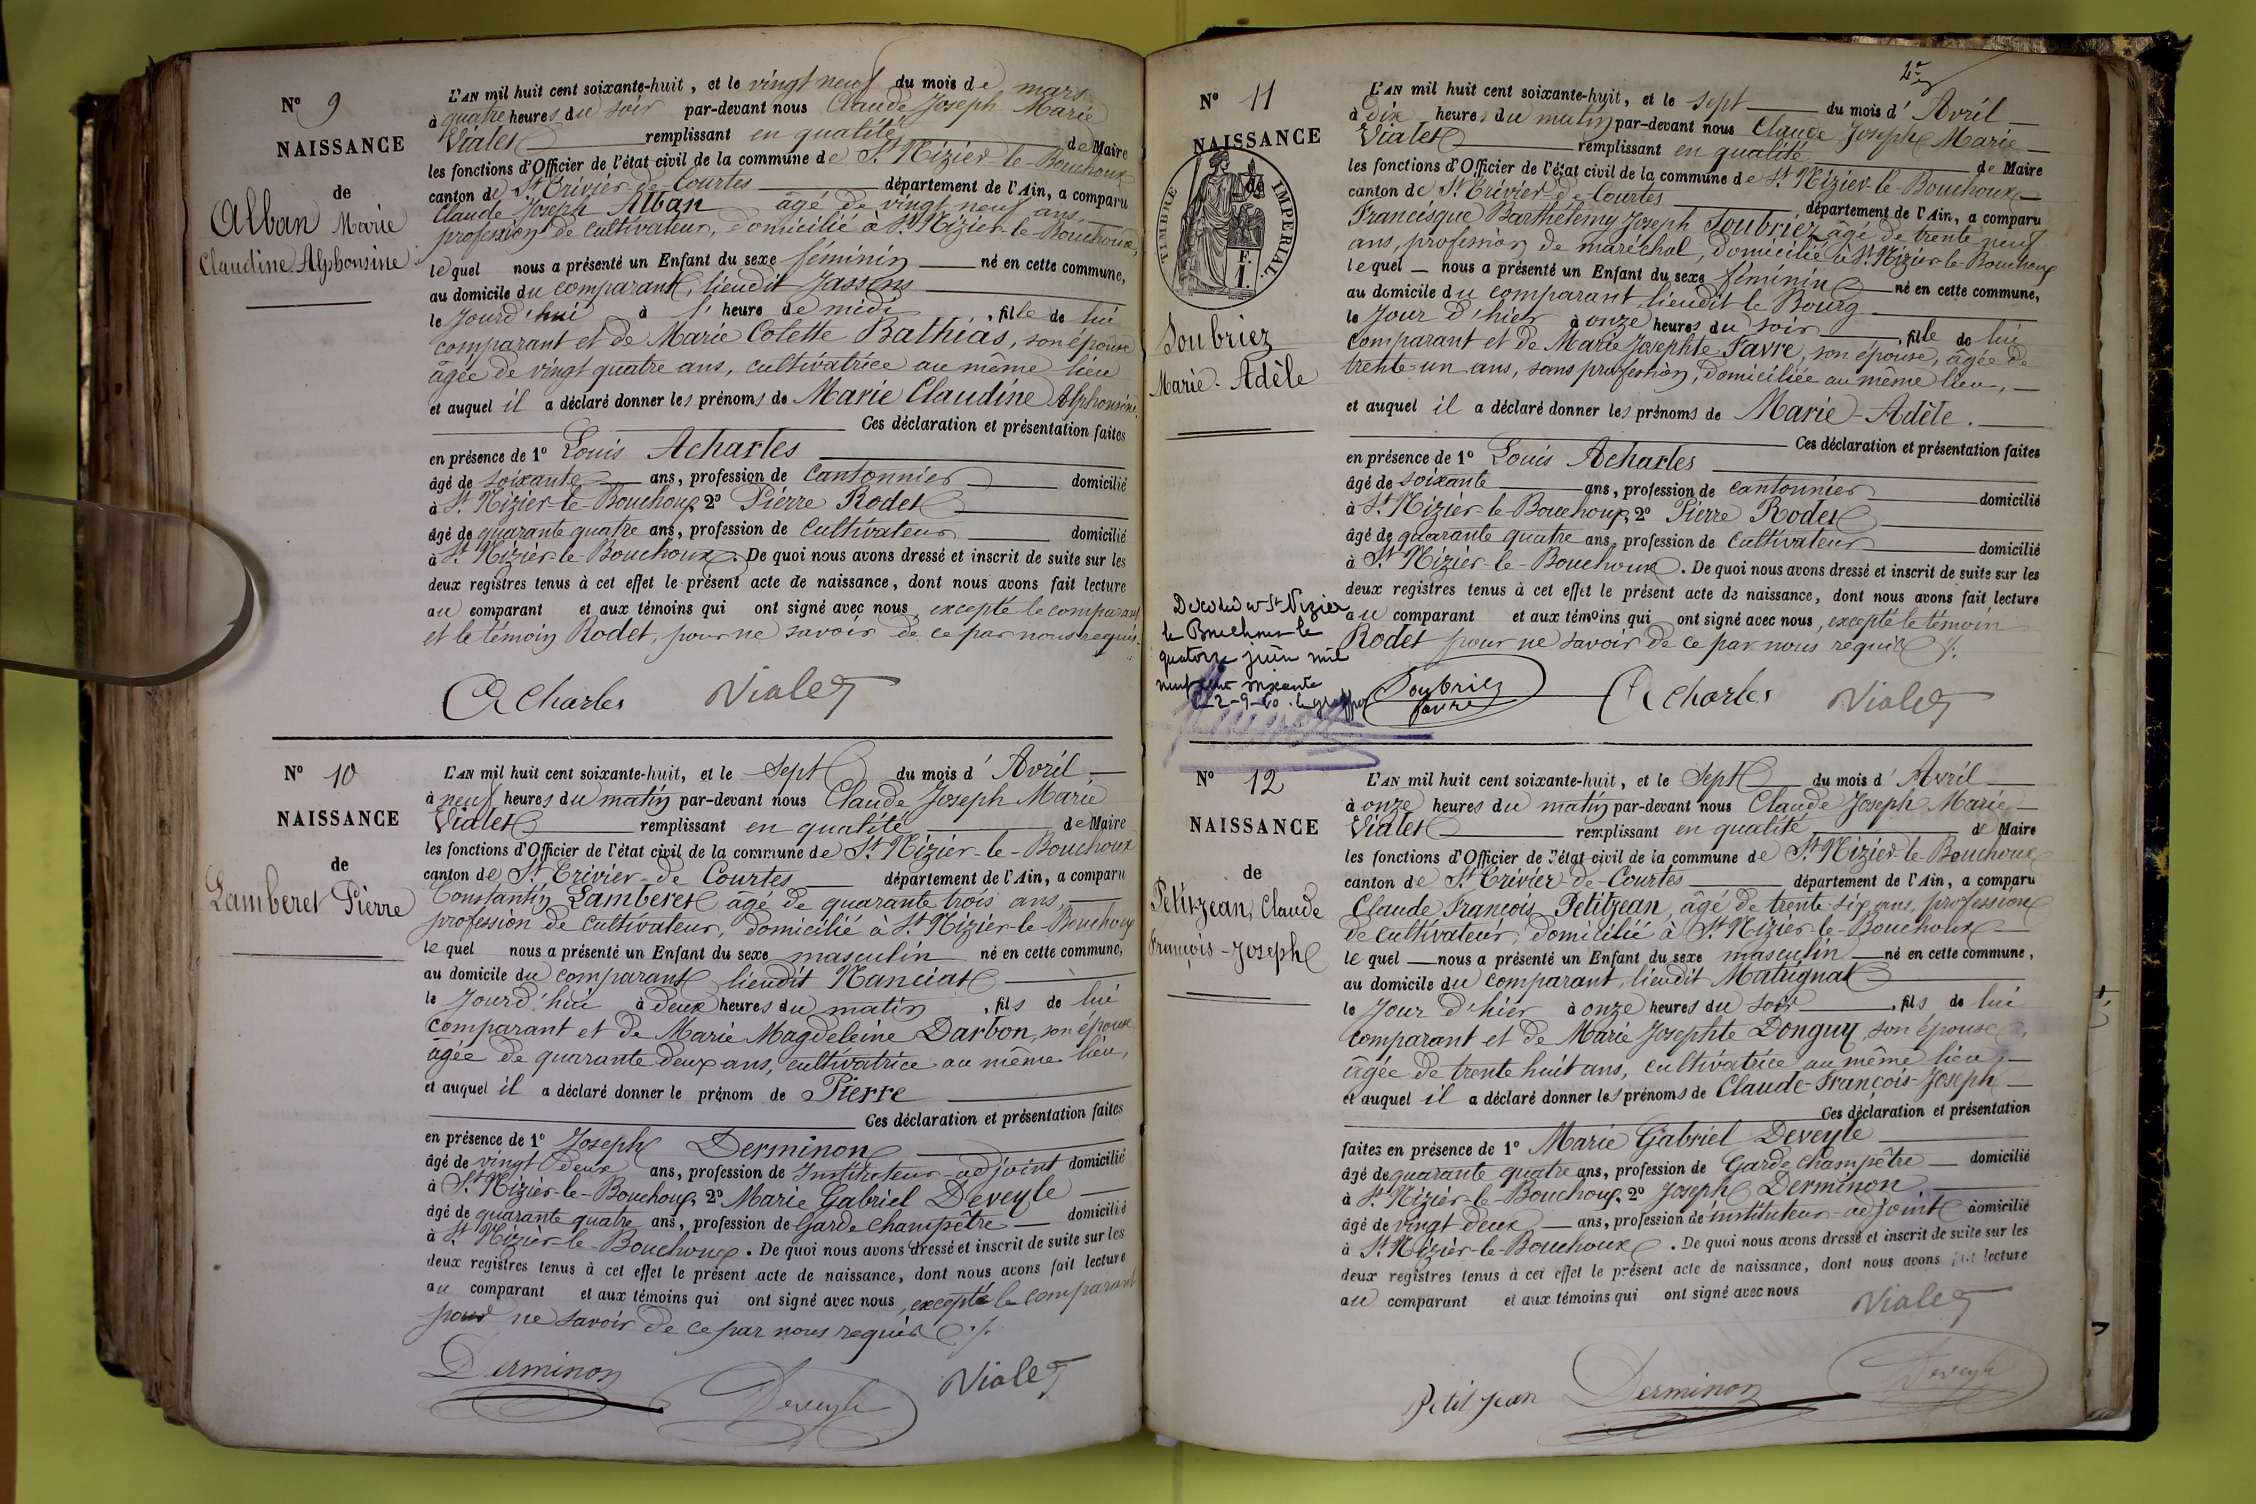 N° 9
NAISSANCE
de
Alban Marie
Claudine Alphonsine
L'AN mil huit cent soixante-huit, et le vingt neuf du mois de mars
à quatre heures du soir par-devant nous Claude Joseph Marie
Vialet remplissant en qualité de Maire
les fonctions d'Officier de l'état civil de la commune de St Nizier-le-Bouchoux
canton de St Trivier-de-Courtes département de l'Ain, a comparu
Claude Joseph Alban âgé de vingt neuf ans,
profession de cultivateur, domicilié à St Nizier-le-Bouchoux,
lequel nous a présenté un Enfant du sexe féminin né en cette commune,
au domicile du comparant, lieudit Jassens
le jourd'hui à l'heure de midi, fille de lui
comparant et de Marie Colette Bathias, son épouse
âgée de vingt quatre ans, cultivatrice au même lieu
et auquel il a déclaré donner les prénoms de Marie Claudine Alphonsine.
Ces déclaration et présentation faites
en présence de 1° Louis Acharles
âgé de soixante ans, profession de cantonnier domicilié
à St Nizier-le-Bouchoux, 2° Pierre Rodet
âgé de quarante quatre ans, profession de cultivateur domicilié
à St Nizier-le-Bouchoux. De quoi nous avons dressé et inscrit de suite sur les
deux registres tenus à cet effet le présent acte de naissance, dont nous avons fait lecture
au comparant et aux témoins qui ont signé avec nous, excepté le comparant
et le témoin Rodet, pour ne savoir de ce par nous requis.
Acharles Vialet
N° 10
NAISSANCE
de
Lamberet Pierre
L'AN mil huit cent soixante-huit, et le sept du mois d'Avril
à neuf heures du matin par-devant nous Claude Joseph Marie
Vialet remplissant en qualité de Maire
les fonctions d'Officier de l'état civil de la commune de St Nizier-le-Bouchoux
canton de St Trivier-de-Courtes département de l'Ain, a comparu
Constantin Lamberet âgé de quarante trois ans,
profession de cultivateur, domicilié à St Nizier-le-Bouchoux
lequel nous a présenté un Enfant du sexe masculin né en cette commune,
au domicile du comparant lieudit Nanciat
le jourd'hui à deux heures du matin, fils de lui
comparant et de Marie Magdeleine Darbon, son épouse
âgée de quarante deux ans, cultivatrice au même lieu,
et auquel il a déclaré donner le prénom de Pierre
Ces déclaration et présentation faites
en présence de 1° Joseph Derminon
âgé de vingt deux ans, profession de Instituteur-adjoint domicilié
à St Nizier-le-Bouchoux, 2° Marie Gabriel Deveyle
âgé de quarante quatre ans, profession de Garde champêtre domicilié
à St Nizier-le-Bouchoux. De quoi nous avons dressé et inscrit de suite sur les
deux registres tenus à cet effet le présent acte de naissance, dont nous avons fait lecture
au comparant et aux témoins qui ont signé avec nous, excepté le comparant
pour ne savoir de ce par nous requis
Derminon Deveyle Vialet
N° 11
NAISSANCE
de
TIMBRE IMPERIAL
F.
1.
Soubriez
Marie-Adèle
L'AN mil huit cent soixante-huit, et le sept du mois d'Avril
à dix heures du matin par-devant nous Claude Joseph Marie
Vialet remplissant en qualité de Maire
les fonctions d'Officier de l'état civil de la commune de St Nizier-le-Bouchoux
canton de St Trivier-de-Courtes département de l'Ain, a comparu
Francisque Barthélemy Joseph Soubriez âgé de trente neuf
ans, profession de maréchal, domicilié à St Nizier-le-Bouchoux
lequel nous a présenté un Enfant du sexe féminin né en cette commune,
au domicile du comparant lieudit le Bourg
le Jour d'hier à onze heures du soir, fille de lui
comparant et de Marie Josephte Favre, son épouse, âgée de
trente-un ans, sans profession, domiciliée au même lieu,
et auquel il a déclaré donner les prénoms de Marie-Adèle.
Ces déclaration et présentation faites
en présence de 1° Louis Acharles
âgé de soixante ans, profession de cantonnier domicilié
à St Nizier-le-Bouchoux, 2° Pierre Rodet
âgé de quarante quatre ans, profession de cultivateur domicilié
à St Nizier-le-Bouchoux. De quoi nous avons dressé et inscrit de suite sur les
deux registres tenus à cet effet le présent acte de naissance, dont nous avons fait lecture
au comparant et aux témoins qui ont signé avec nous, excepté le témoin
Rodet pour ne savoir de ce par nous requis
Décédée à St Nizier
le Bouchoux le
quatorze juin mil
neuf cent soixante
le 2-9-60. le greffier
Soubriez
favre
Acharles Vialet
N° 12
NAISSANCE
de
Petitjean, Claude
François-Joseph
L'AN mil huit cent soixante-huit, et le sept du mois d'Avril
à onze heures du matin par-devant nous Claude Joseph Marie
Vialet remplissant en qualité de Maire
les fonctions d'Officier de l'état civil de la commune de St Nizier-le-Bouchoux
canton de St Trivier-de-Courtes département de l'Ain, a comparu
Claude François Petitjean, âgé de trente six ans, profession
de cultivateur, domicilié à St Nizier-le-Bouchoux
lequel nous a présenté un Enfant du sexe masculin né en cette commune,
au domicile du comparant, lieudit Matrignat
le Jour d'hier à onze heures du soir, fils de lui
comparant et de Marie Josephte Donguy son épouse,
âgée de trente huit ans, cultivatrice au même lieu,
et auquel il a déclaré donner les prénoms de Claude-François-Joseph
Ces déclaration et présentation
faites en présence de 1° Marie Gabriel Deveyle
âgé de quarante quatre ans, profession de Garde champêtre domicilié
à St Nizier-le-Bouchoux, 2° Joseph Derminon
âgé de vingt deux ans, profession de instituteur-adjoint domicilié
à St Nizier-le-Bouchoux. De quoi nous avons dressé et inscrit de suite sur les
deux registres tenus à cet effet le présent acte de naissance, dont nous avons fait lecture
au comparant et aux témoins qui ont signé avec nous
Vialet
Petit Jean Derminon Deveyle